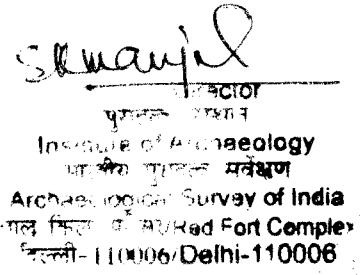 SKManjul
Director
पुरातत्व संस्थान
Institute of Archaeology
भारतीय पुरातत्व सर्वेक्षण
Archaeological Survey of India
Red Fort Complex
दिल्ली-110006/Delhi-110006